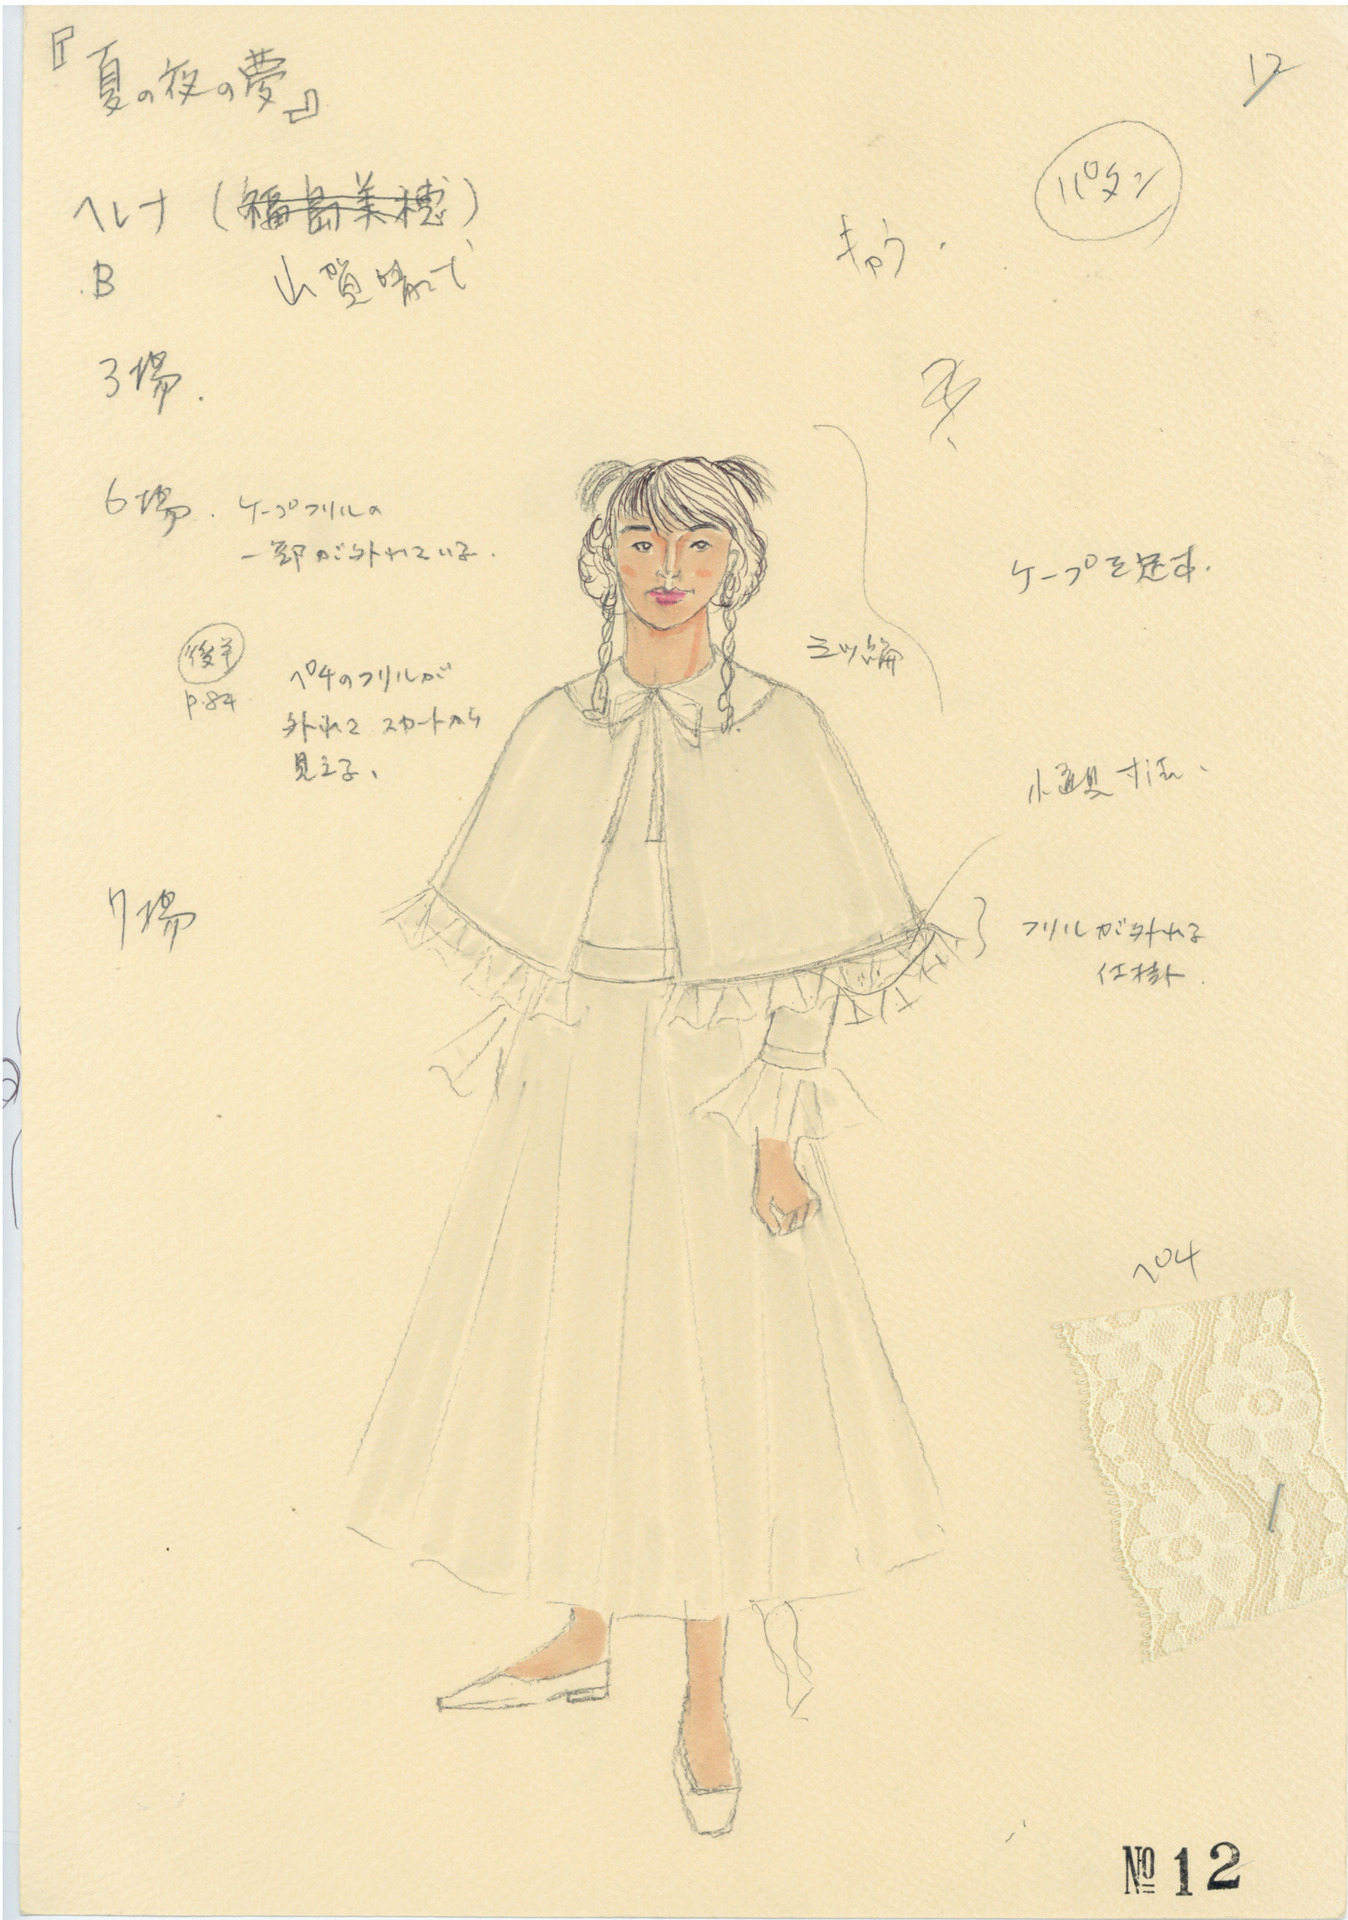 『夏の夜の夢』
12
パタン
ヘレナ (福島美穂)
B 山賀晴代
3場.
6場. ケープフリルの
一部が外れている.
ケープを足す.
三ツ編
後半
p.84
ペチのフリルが
外れて スカートから
見える、
小道具寸法.
7場
フリルが外れる
仕掛.
ペチ
№12